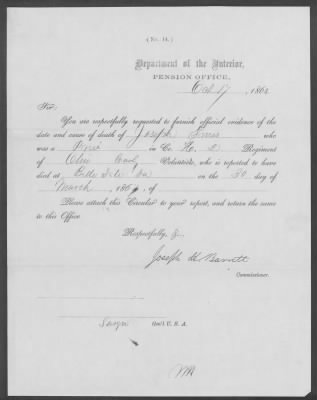 ( No. 14. )
Department of the Interior,
PENSION OFFICE,
Oct 17, 186
Sir:
You are respectfully requested to furnish official evidence of the
date and cause of death of Joseph who
was a Priv in Co. Regiment
of Ohio Cavly Volunteers, who is reported to have
died at on the 30 day of
March, 186 , of
Please attach this Circular to your report, and return the same
to this Office
Respectfully, &c.
Joseph H Barrett
Commissioner.
Surgn Gen'l U. S. A.